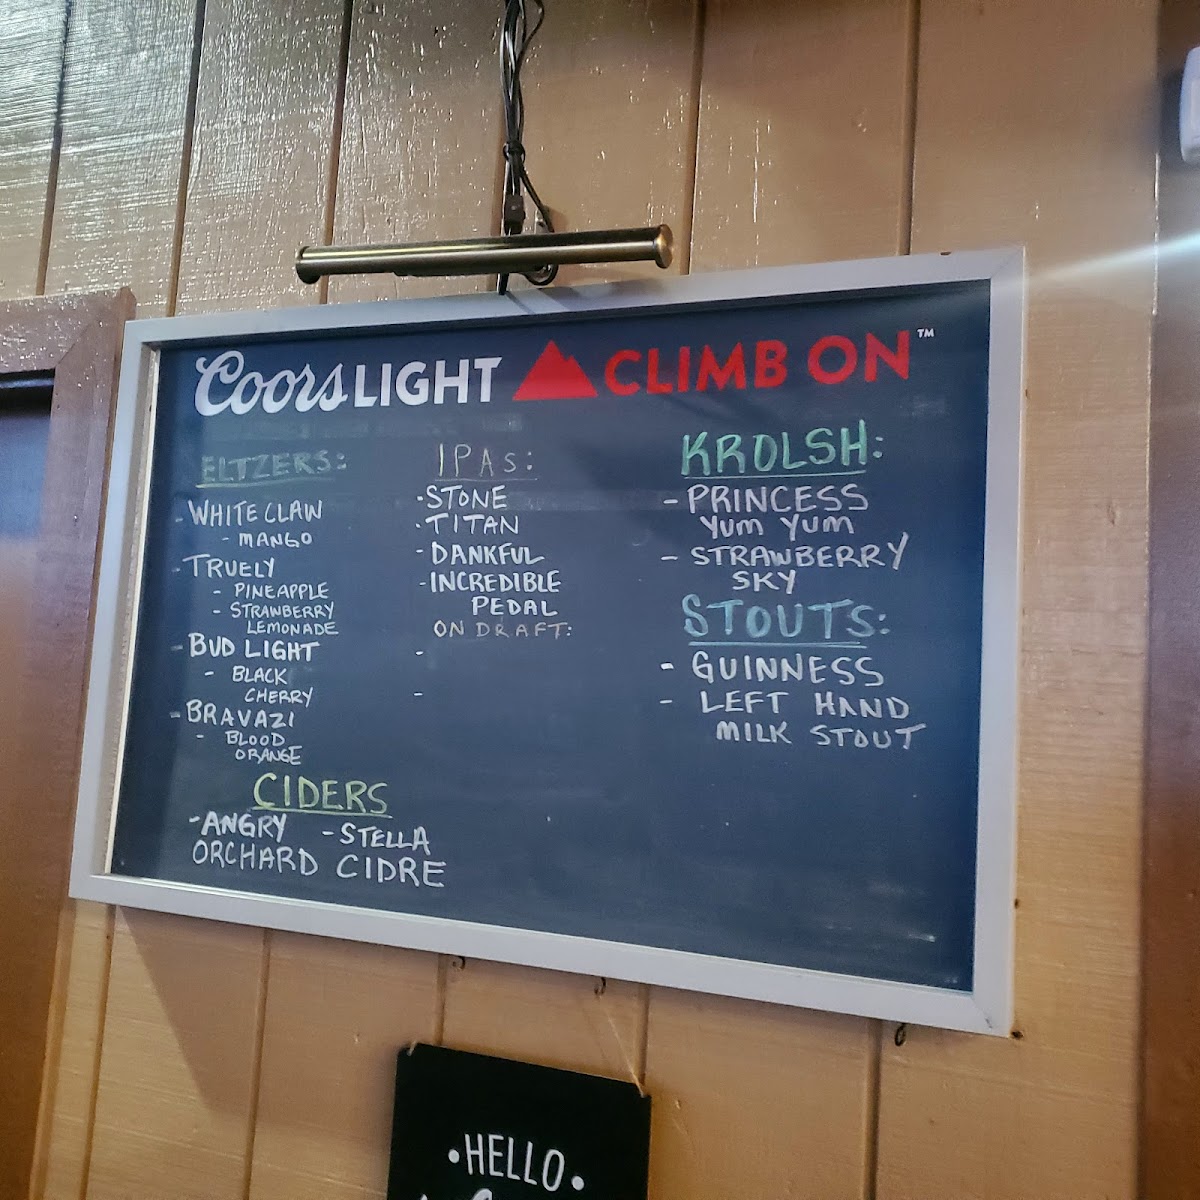 Coors LIGHT CLIMB ON™
ELTZERS:
- WHITE CLAW
- MANGO
- TRUELY
- PINEAPPLE
- STRAWBERRY
LEMONADE
- BUD LIGHT
- BLACK
CHERRY
- BRAVAZI
- BLOOD
ORANGE
CIDERS
- ANGRY - STELLA
ORCHARD CIDRE
IPAS:
· STONE
· TITAN
- DANKFUL
- INCREDIBLE
PEDAL
ON DRAFT:
-
-
KROLSH:
- PRINCESS
YUM YUM
- STRAWBERRY
SKY
STOUTS:
- GUINNESS
- LEFT HAND
MILK STOUT
• HELLO •